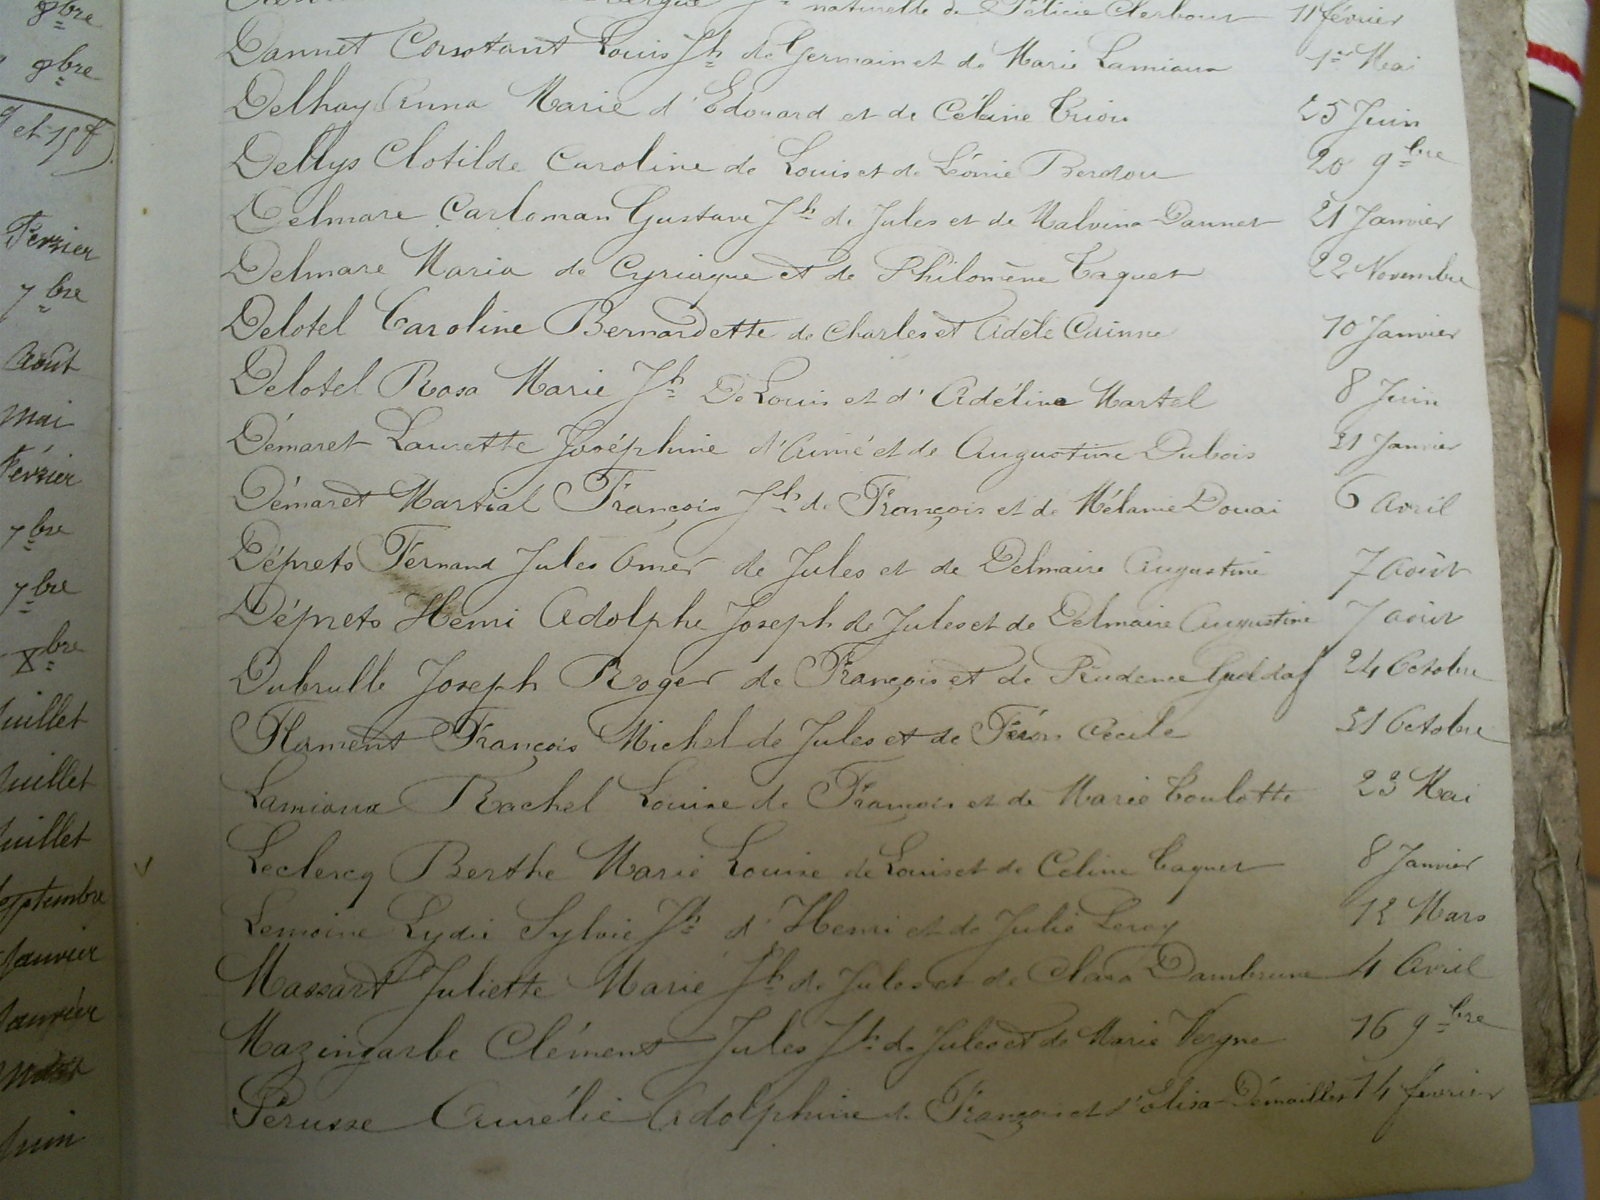 naturelle de Félicie Clerbout 11 février
Dannet Constant Louis Jh de Germain et de Marie Lamiaux 1er Mai
Delhay Anna Marie d'Edouard et de Céline Triou 25 Juin
Dellys Clotilde Caroline de Louis et de Léonie Berdou 20 9bre
Delmare Carloman Gustave Jh de Jules et de Malvina Dannet 21 Janvier
Delmare Maria de Cyriaque et de Philomène Caquet 22 Novembre
Delotel Caroline Bernardette de Charles et Adèle Cuinne 10 Janvier
Delotel Rosa Marie Jh De Louis et d'Adéline Martel 8 Juin
Démaret Laurette Joséphine d'Aimé et de Augustine Dubois 21 Janvier
Démaret Martial François Jh de François et de Mélanie Douai 6 Avril
Déprets Fernand Jules Omer de Jules et de Delmaire Augustine 7 Août
Déprets Henri Adolphe Joseph de Jules et de Delmaire Augustine 7 août
Dubrulle Joseph Roger de François et de Prudence Gueldaf 24 Octobre
Flament François Michel de Jules et de Féron Cécile 31 Octobre
Lamiaux Rachel Louise de François et de Marie Coulotte 23 Mai
Leclercq Berthe Marie Louise de Louis et de Céline Caquet 8 Janvier
Lemoine Lydie Sylvie Jh d'Henri et de Julie Leroy 12 Mars
Massart Juliette Marie Jh de Jules et de Clara Dambrune 4 Avril
Mazingarbe Clément Jules Jh de Jules et de Marie Vergne 16 9bre
Pérusse Aurélie Adolphine de François et d'Elisa Démailler 14 février
9bre
9bre
Février
7bre
Août
Mai
Février
7bre
7bre
Xbre
Juillet
Juillet
Juillet
Septembre
Janvier
Janvier
Juin